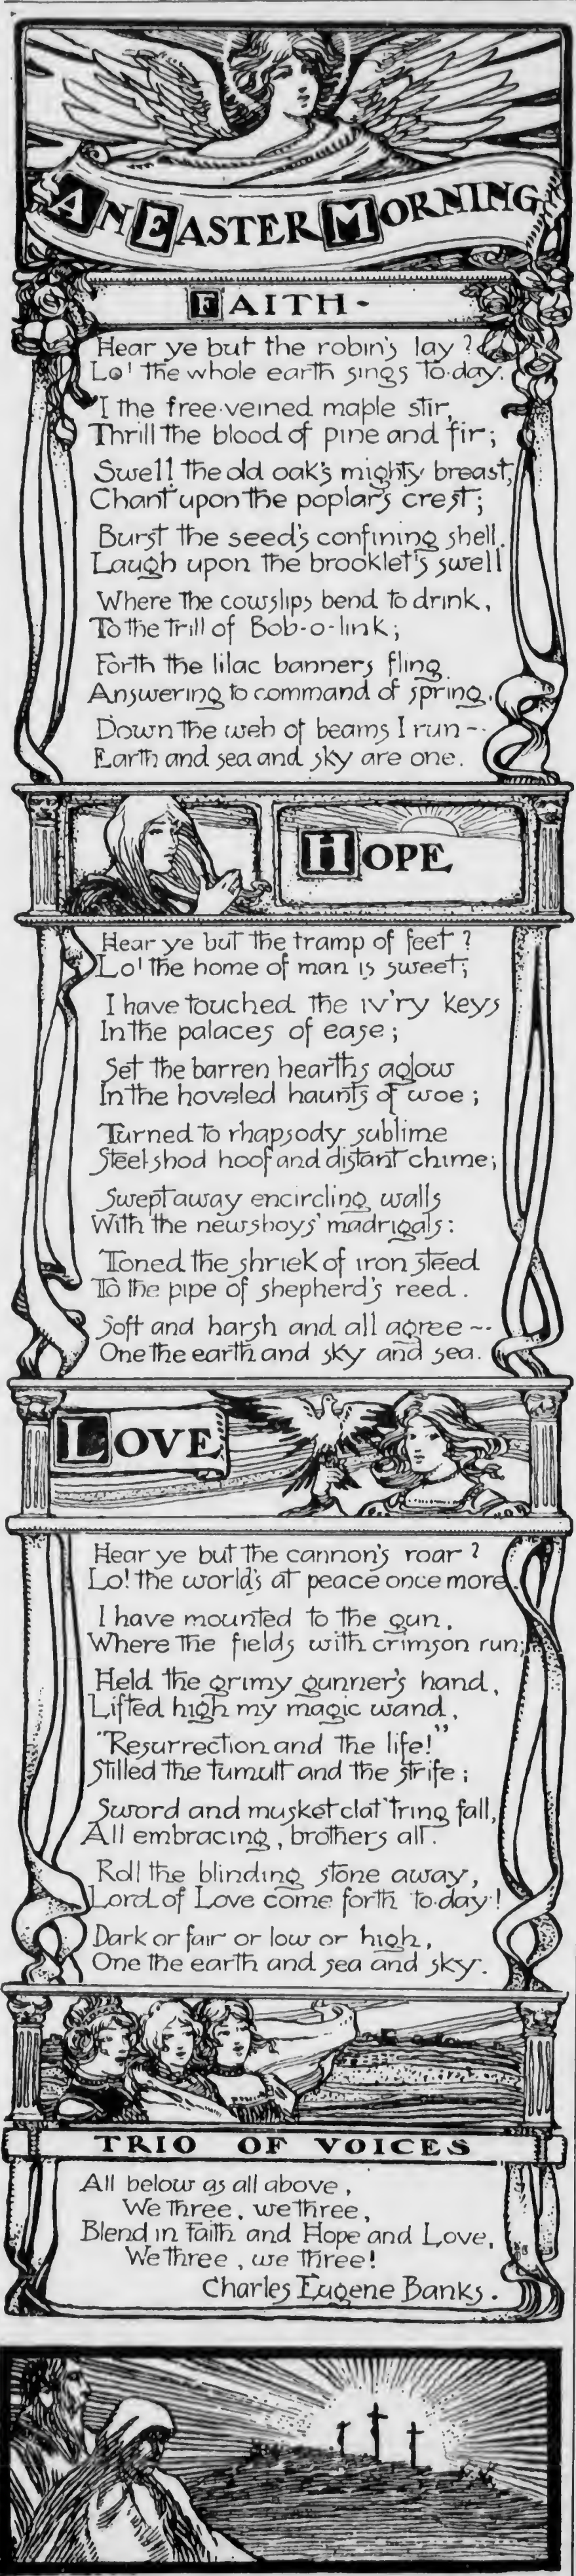 AN EASTER MORNING
FAITH-
Hear ye but the robin's lay?
Lo! the whole earth sings to-day.
I the free-veined maple stir,
Thrill the blood of pine and fir;
Swell the old oak's mighty breast,
Chant upon the poplar's crest;
Burst the seed's confining shell.
Laugh upon the brooklet's swell
Where the cowslips bend to drink,
To the trill of Bob-o-link;
Forth the lilac banners fling
Answering to command of spring.
Down the web of beams I run--
Earth and sea and sky are one.
HOPE
Hear ye but the tramp of feet?
Lo! the home of man is sweet;
I have touched the iv'ry keys
In the palaces of ease;
Set the barren hearths aglow
In the hoveled haunts of woe;
Turned to rhapsody sublime
Steel-shod hoof and distant chime;
Swept away encircling walls
With the newsboys' madrigals:
Toned the shriek of iron steed
To the pipe of shepherd's reed.
Soft and harsh and all agree--
One the earth and sky and sea.
LOVE
Hear ye but the cannon's roar?
Lo! the world's at peace once more.
I have mounted to the gun,
Where the fields with crimson run;
Held the grimy gunner's hand,
Lifted high my magic wand,
"Resurrection and the life!"
Stilled the tumult and the strife;
Sword and musket clat'tring fall,
All embracing, brothers all.
Roll the blinding stone away,
Lord of Love come forth to-day!
Dark or fair or low or high,
One the earth and sea and sky.
TRIO OF VOICES
All below as all above,
We three, we three,
Blend in Faith and Hope and Love,
We three, we three!
Charles Eugene Banks.